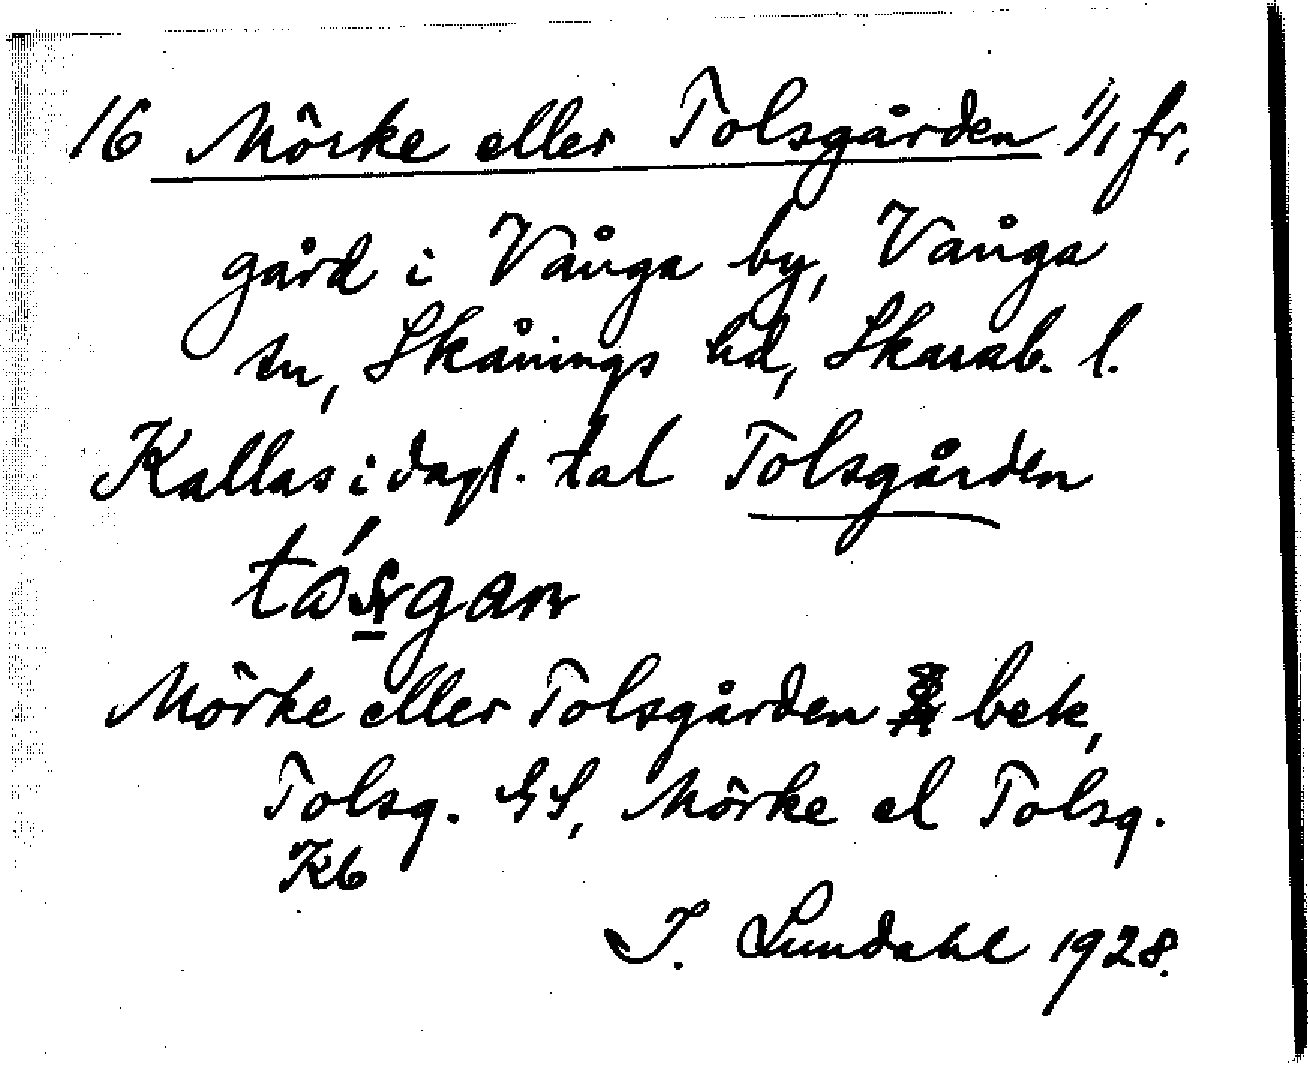 16 Mörke eller Tolsgården 1/1 fr.
gård i Vånga by, Vånga
sn, Skånings hd, Skarab. l.
Kallas i dagl. tal Tolsgården
Mörke eller Tolsgården bek,
Tolsg. GS, Mörke el Tolsg.
Kb
I. Lundahl 1928.